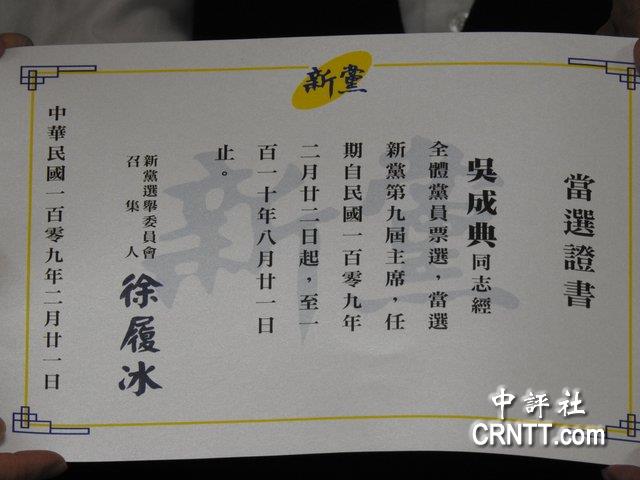 新黨
當選證書
吳成典同志經
全體黨員票選，當選
新黨第九屆主席，任
期自民國一百零九年
二月廿二日起，至一
百一十年八月廿一日
止。
新黨選舉委員會
召集人
徐履冰
中華民國一百零九年二月廿一日
新黨
中評社
CRNTT.com